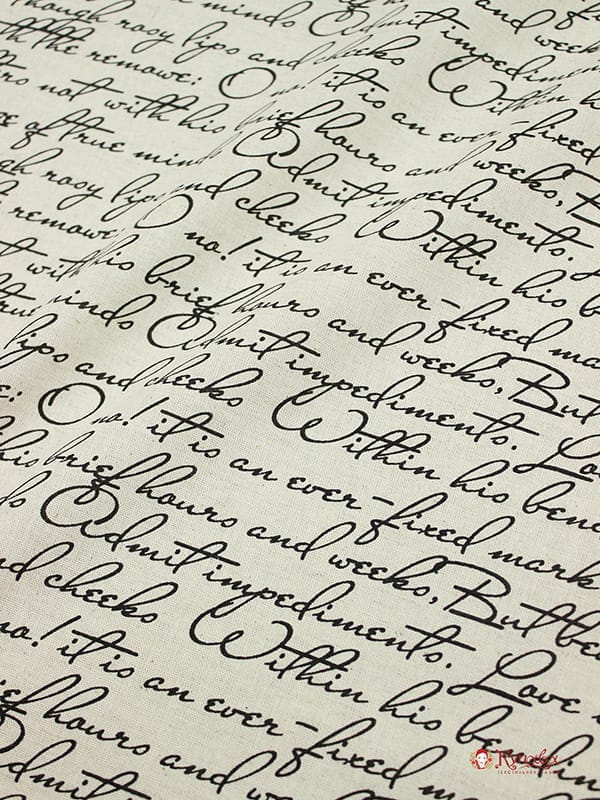 though rosy lips and cheeks
minds Admit impediments.
and weeks
with the remove: O no! it is an ever-fixed
not with his brief hours and weeks, B
of true minds Admit impediments. L
rosy lips and cheeks Within his b
remove O no! it is an ever-fixed ma
t with his brief hours and weeks, But
true minds Admit impediments. Lo
lips and cheeks Within his ben
e: O no! it is an ever-fixed mark
his brief hours and weeks, But bea
ds Admit impediments. Love
nd cheeks Within his bendin
no! it is an ever-fixed
ief hours and weeks
Admit